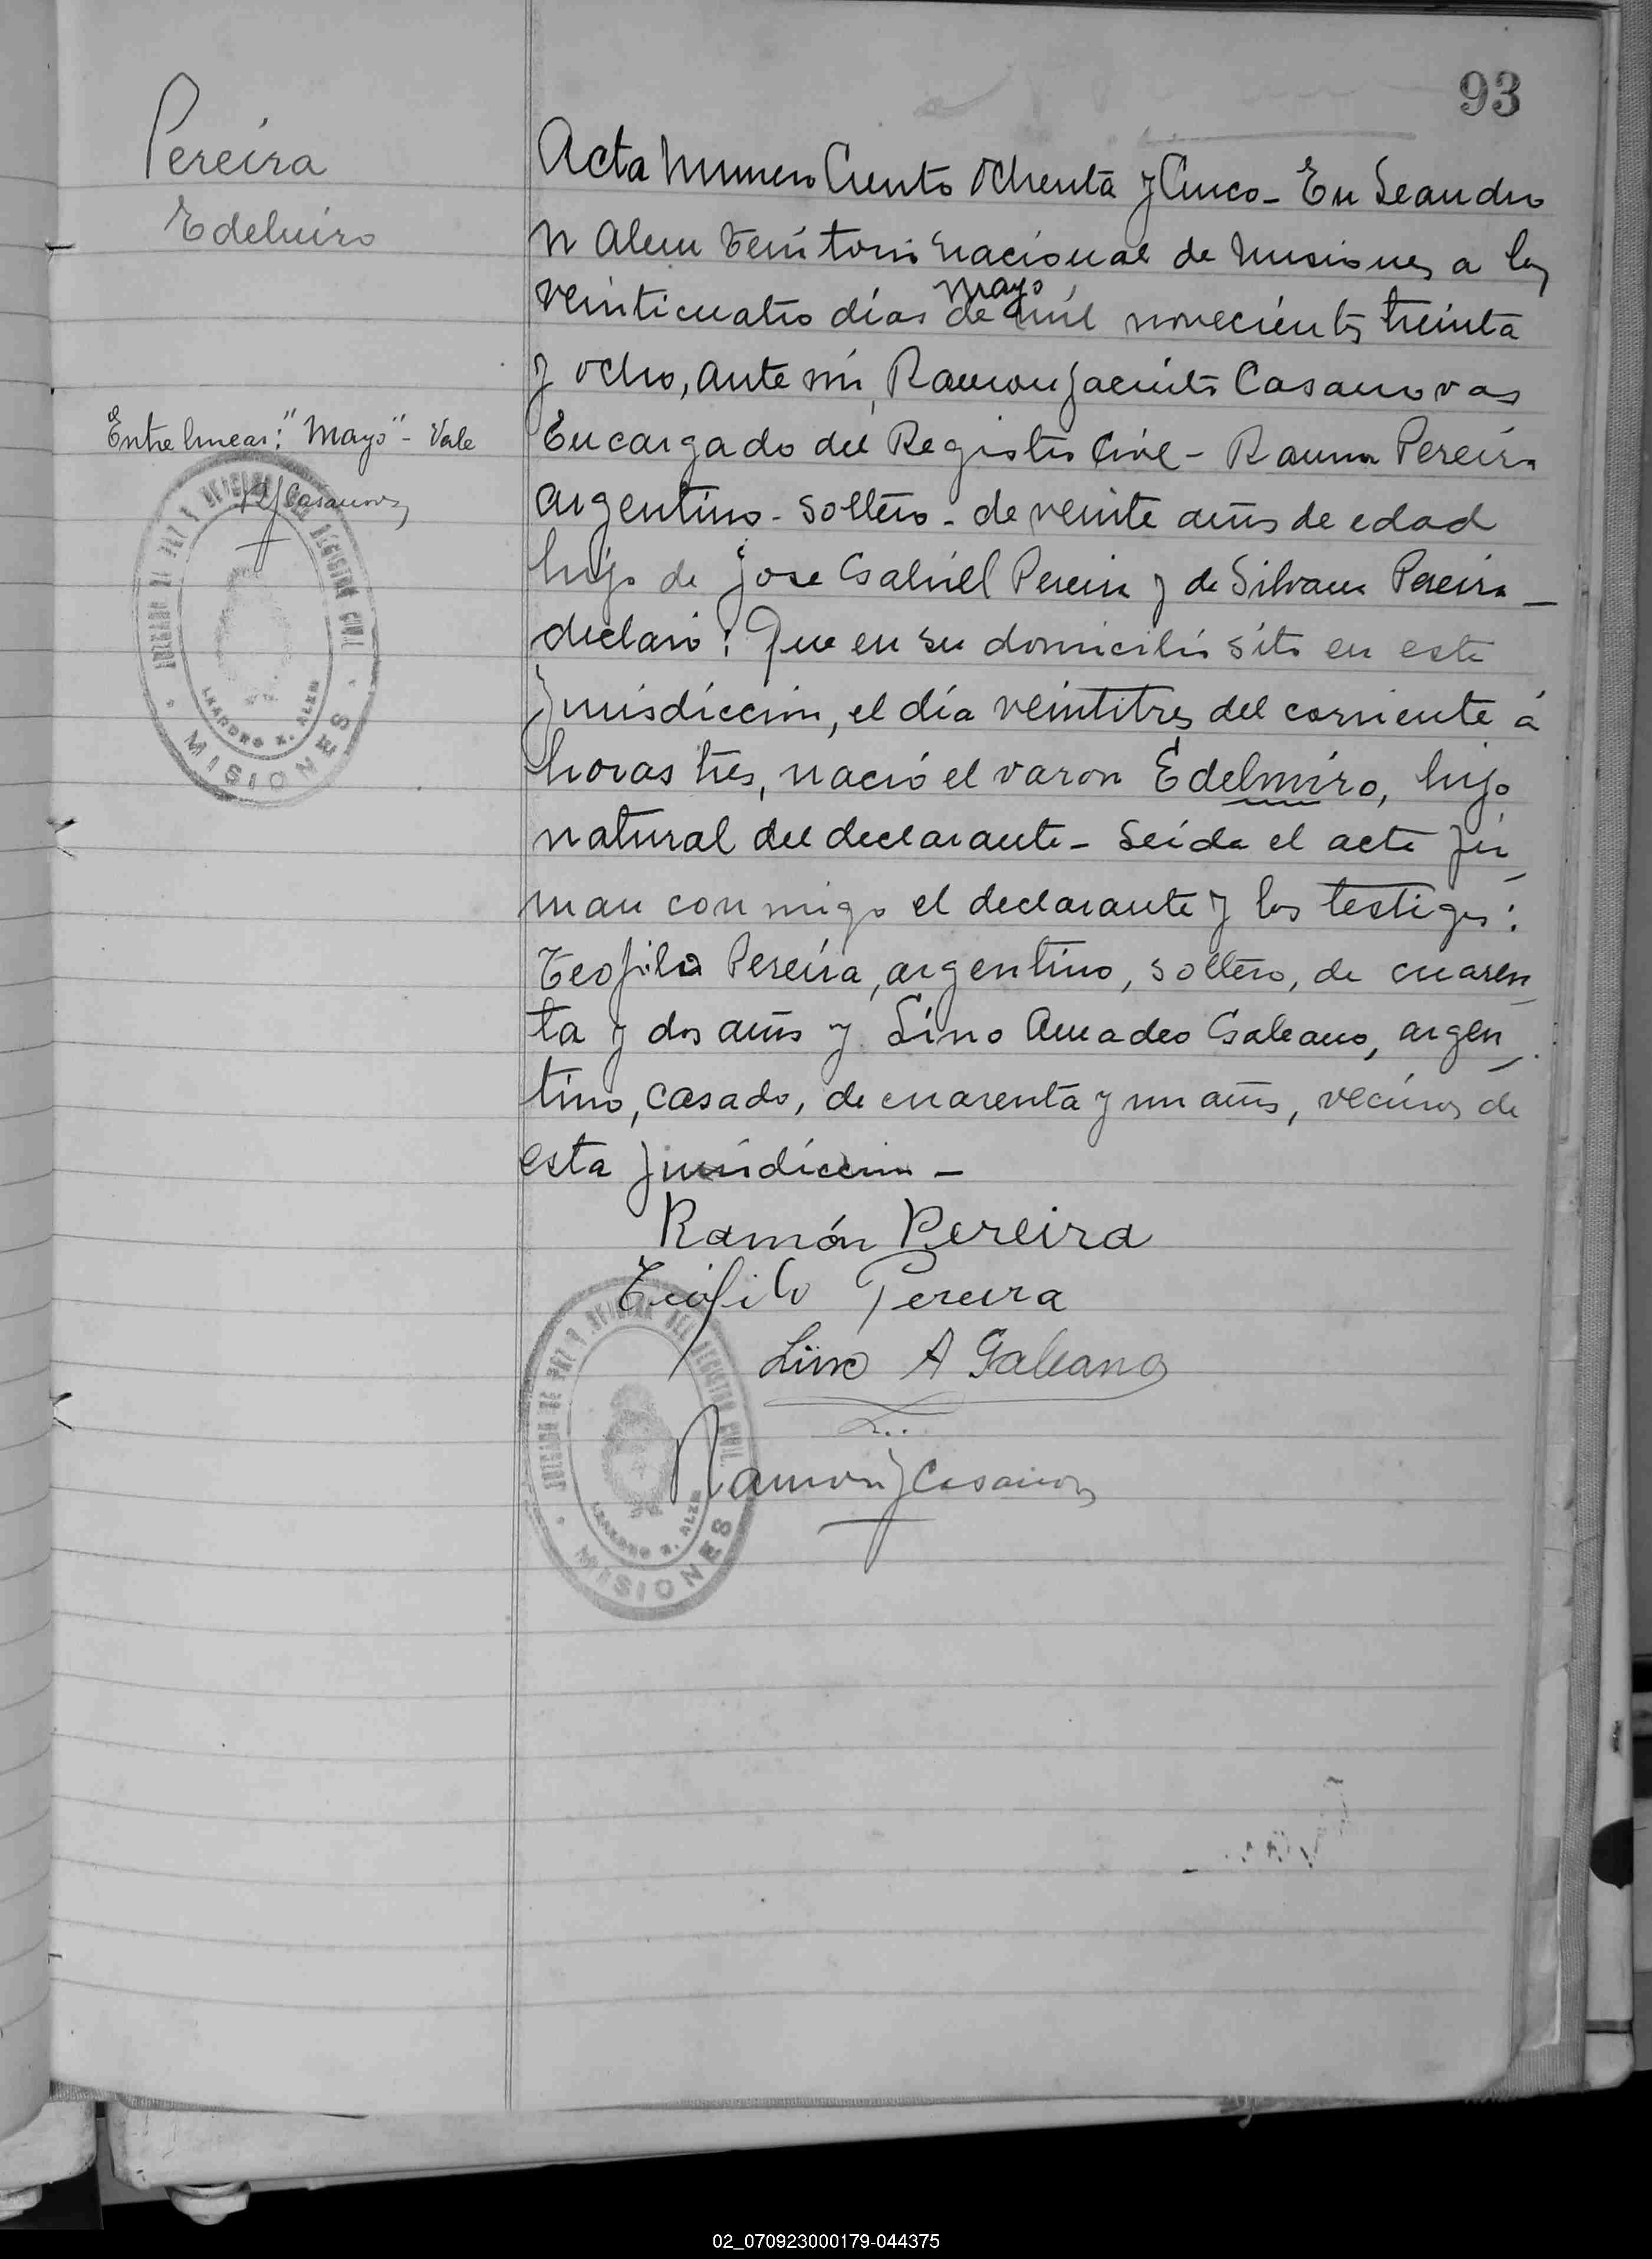 93
Pereira
Edelmiro
Entre lineas: "Mayo" - Vale
RJCasanovas
JUZGADO DE PAZ Y OFICINA DEL REGISTRO CIVIL
LEANDRO N. ALEM
MISIONES
Acta Numero Ciento Ochenta y Cinco - En Leandro
N Alem Territorio Nacional de Misiones a los
mayo
veinticuatro días de mil novecientos treinta
y ocho, ante mi, Ramon Jacinto Casanovas
Encargado del Registro Civil - Ramon Pereira
argentino - soltero - de veinte años de edad
hijo de Jose Gabriel Pereira y de Silvana Pereira -
declaro: Que en su domicilio sito en esta
Jurisdiccion, el día veintitres del corriente á
horas tres, nació el varon Edelmiro, hijo
natural del declarante - Leida el acta fir
man conmigo el declarante y los testigos:
Teofilo Pereira, argentino, soltero, de cuaren
ta y dos años y Lino Amadeo Galeano, argen
tino, casado, de cuarenta y un años, vecinos de
esta Jurisdiccion -
Ramón Pereira
Teófilo Pereira
Lino A Galeano
Ramon J Casanovas
JUZGADO DE PAZ Y OFICINA DEL REGISTRO CIVIL
LEANDRO N. ALEM
MISIONES
02_070923000179-044375